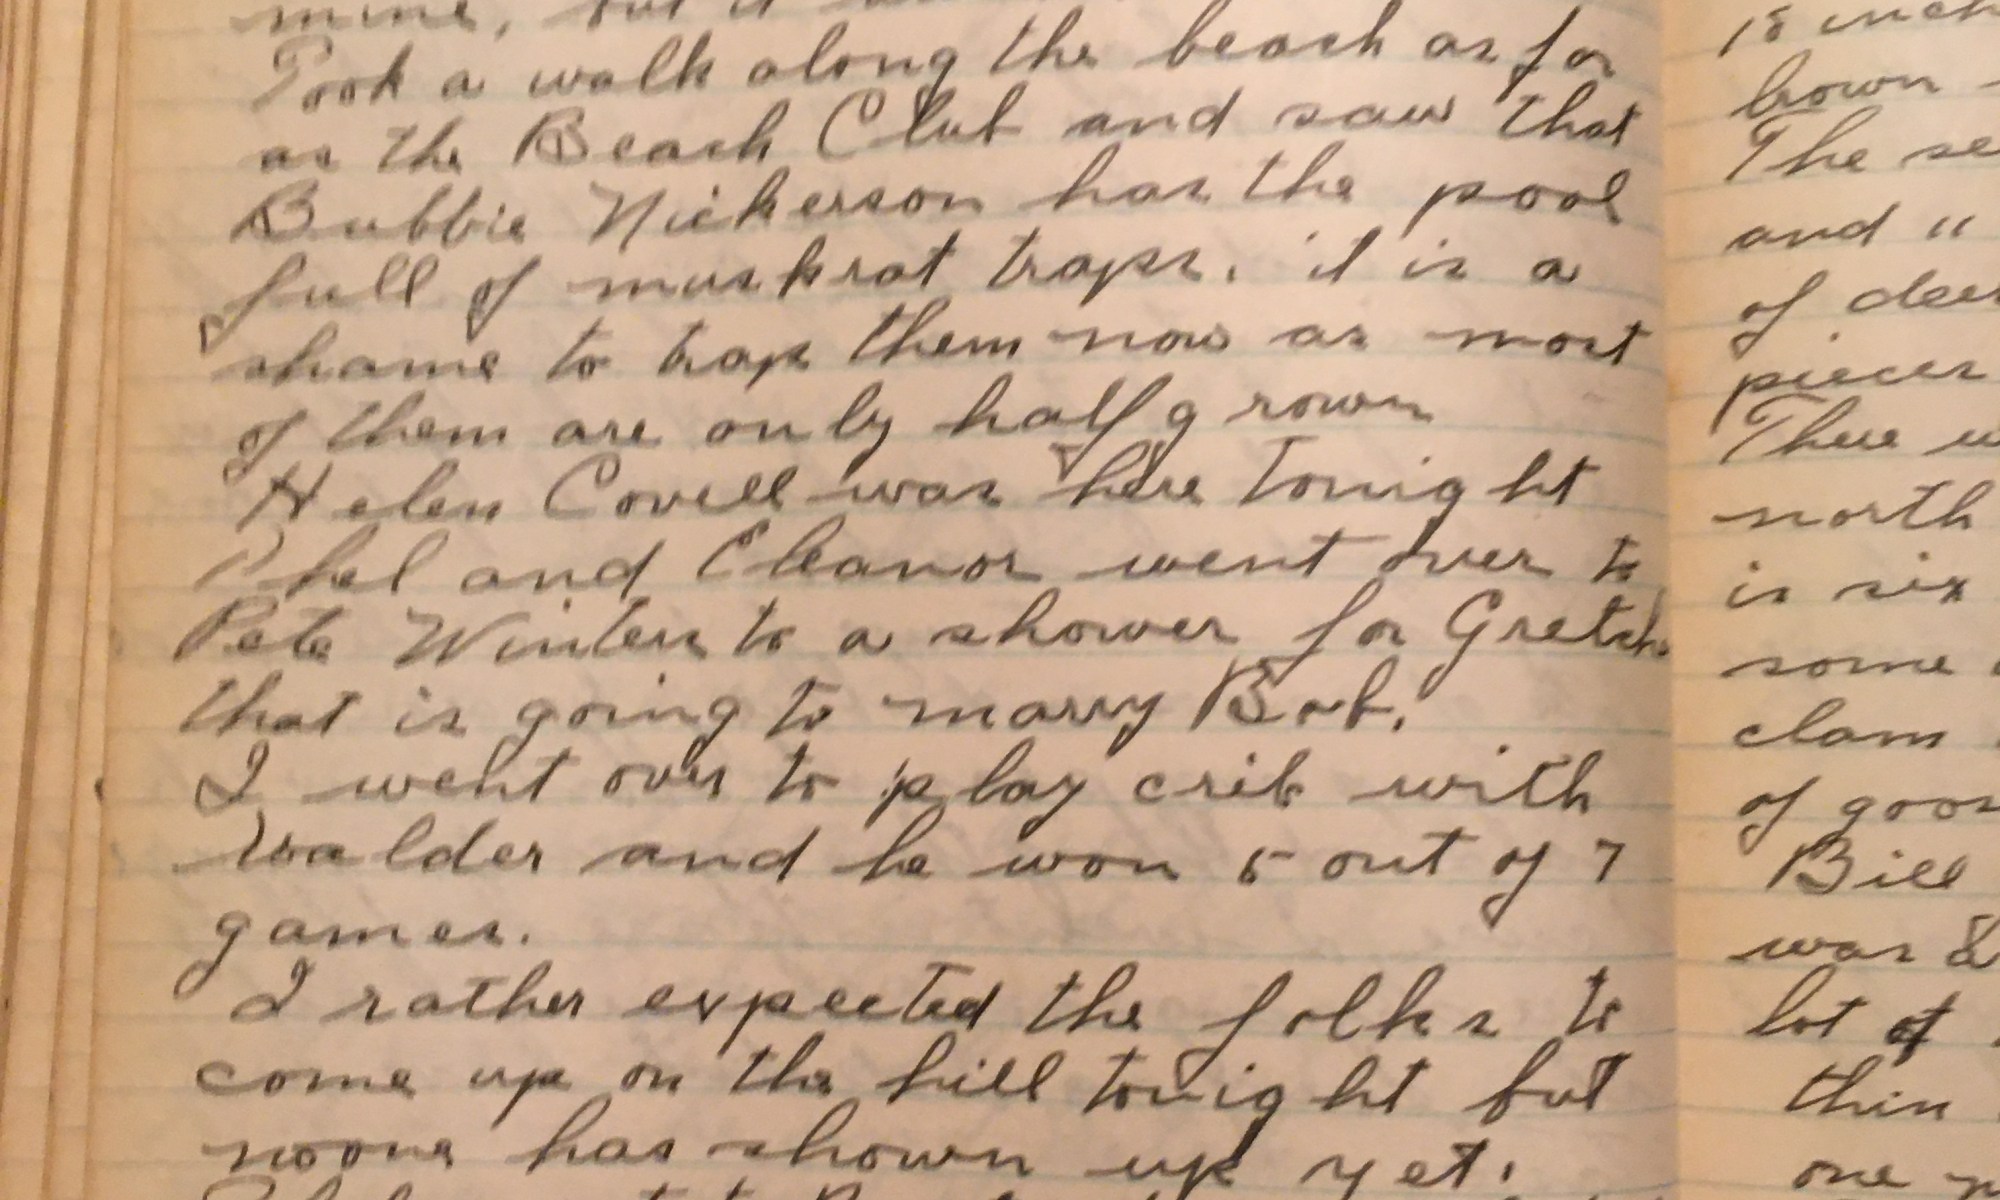 mine, but it
Took a walk along the beach as far
as the Beach Club and saw that
Bubbie Nickerson has the pool
full of muskrat traps. it is a
shame to trap them now as most
of them are only half grown
Helen Covell was here tonight
Phel and Eleanor went over to
Pete Winters to a shower for
that is going to marry Bob.
I went over to play crib with
Walder and he won 5 out of 7
games.
I rather expected the folks to
come up on the hill tonight but
noone has shown up yet.
18
brown
The
and "
of
pieces
There
north
is six
some
clam
of
Bill
was
lot of
thin
one